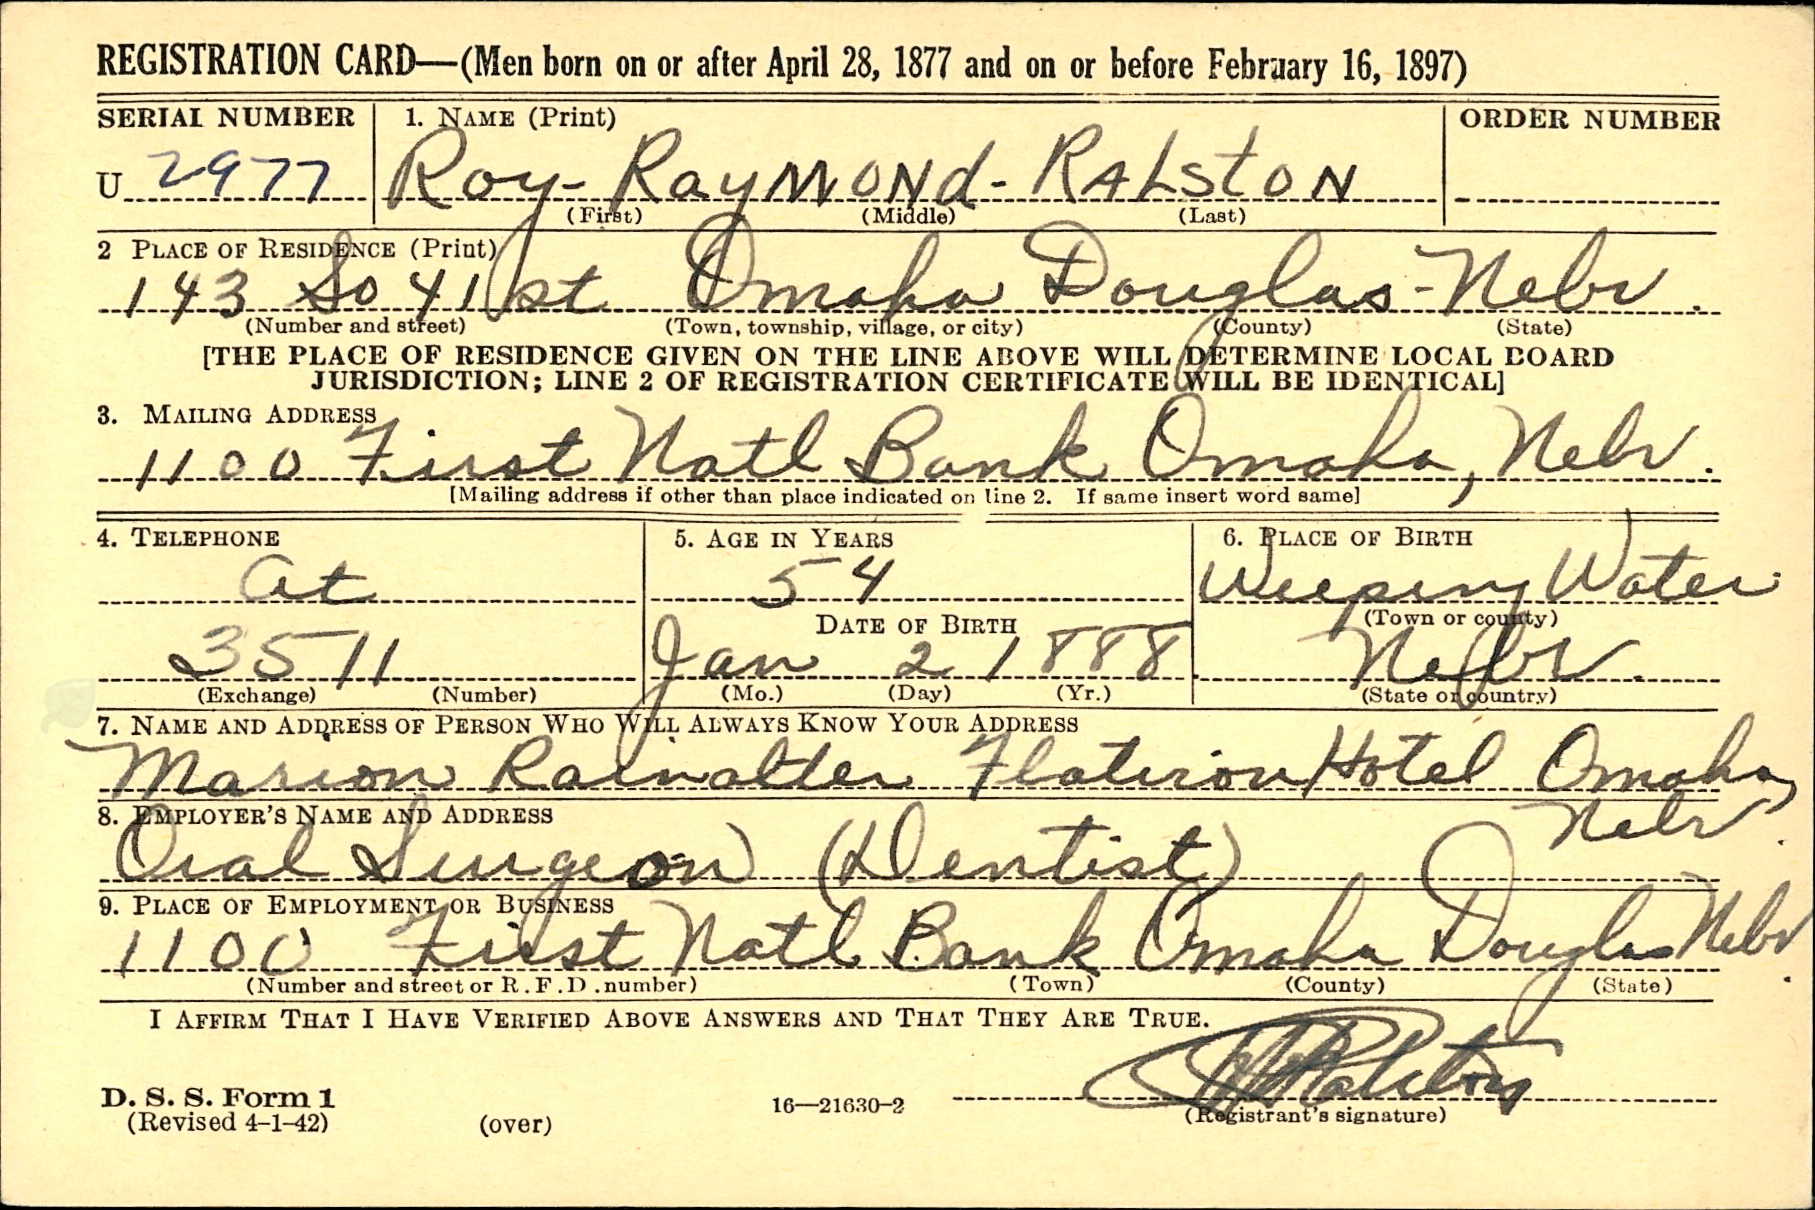 REGISTRATION CARD—(Men born on or after April 28, 1877 and on or before February 16, 1897)
SERIAL NUMBER 1. NAME (Print) ORDER NUMBER
U 2977 Roy- RayMONd- RALStON
(First) (Middle) (Last)
2 PLACE OF RESIDENCE (Print)
143 So 41 st Omaha Douglas - Nebr.
(Number and street) (Town, township, village, or city) (County) (State)
[THE PLACE OF RESIDENCE GIVEN ON THE LINE ABOVE WILL DETERMINE LOCAL BOARD
JURISDICTION; LINE 2 OF REGISTRATION CERTIFICATE WILL BE IDENTICAL]
3. MAILING ADDRESS
1100 First Natl Bank Omaha, Nebr.
[Mailing address if other than place indicated on line 2. If same insert word same]
4. TELEPHONE 5. AGE IN YEARS 6. PLACE OF BIRTH
At 54 Weeping Water
DATE OF BIRTH (Town or county)
3511 Jan 2 1888 Nebr.
(Exchange) (Number) (Mo.) (Day) (Yr.) (State or country)
7. NAME AND ADDRESS OF PERSON WHO WILL ALWAYS KNOW YOUR ADDRESS
Marion Flatiron Hotel Omaha,
Nebr.
8. EMPLOYER'S NAME AND ADDRESS
Oral Surgeon (Dentist)
9. PLACE OF EMPLOYMENT OR BUSINESS
1100 First Natl Bank Omaha Douglas Nebr.
(Number and street or R. F. D. number) (Town) (County) (State)
I AFFIRM THAT I HAVE VERIFIED ABOVE ANSWERS AND THAT THEY ARE TRUE.
Ralston
D. S. S. Form 1 16—21630-2 (Registrant's signature)
(Revised 4-1-42) (over)